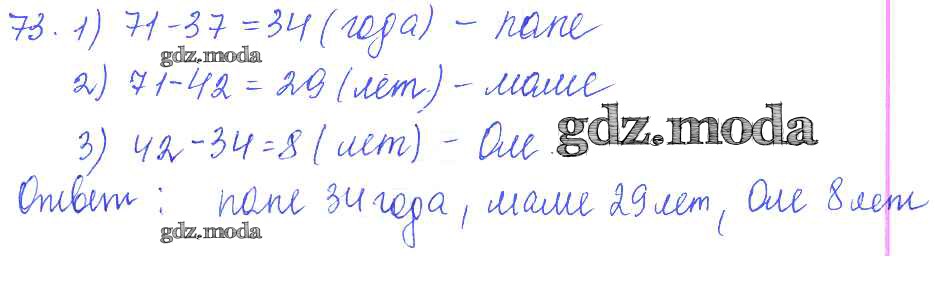 73. 1) 71-37=34 (года) - папе
gdz.moda
2) 71-42 = 29 (лет) - маме
gdz.moda
3) 42-34=8 (лет) - Оле.
Ответ: папе 34 года, маме 29 лет, Оле 8 лет
gdz.moda